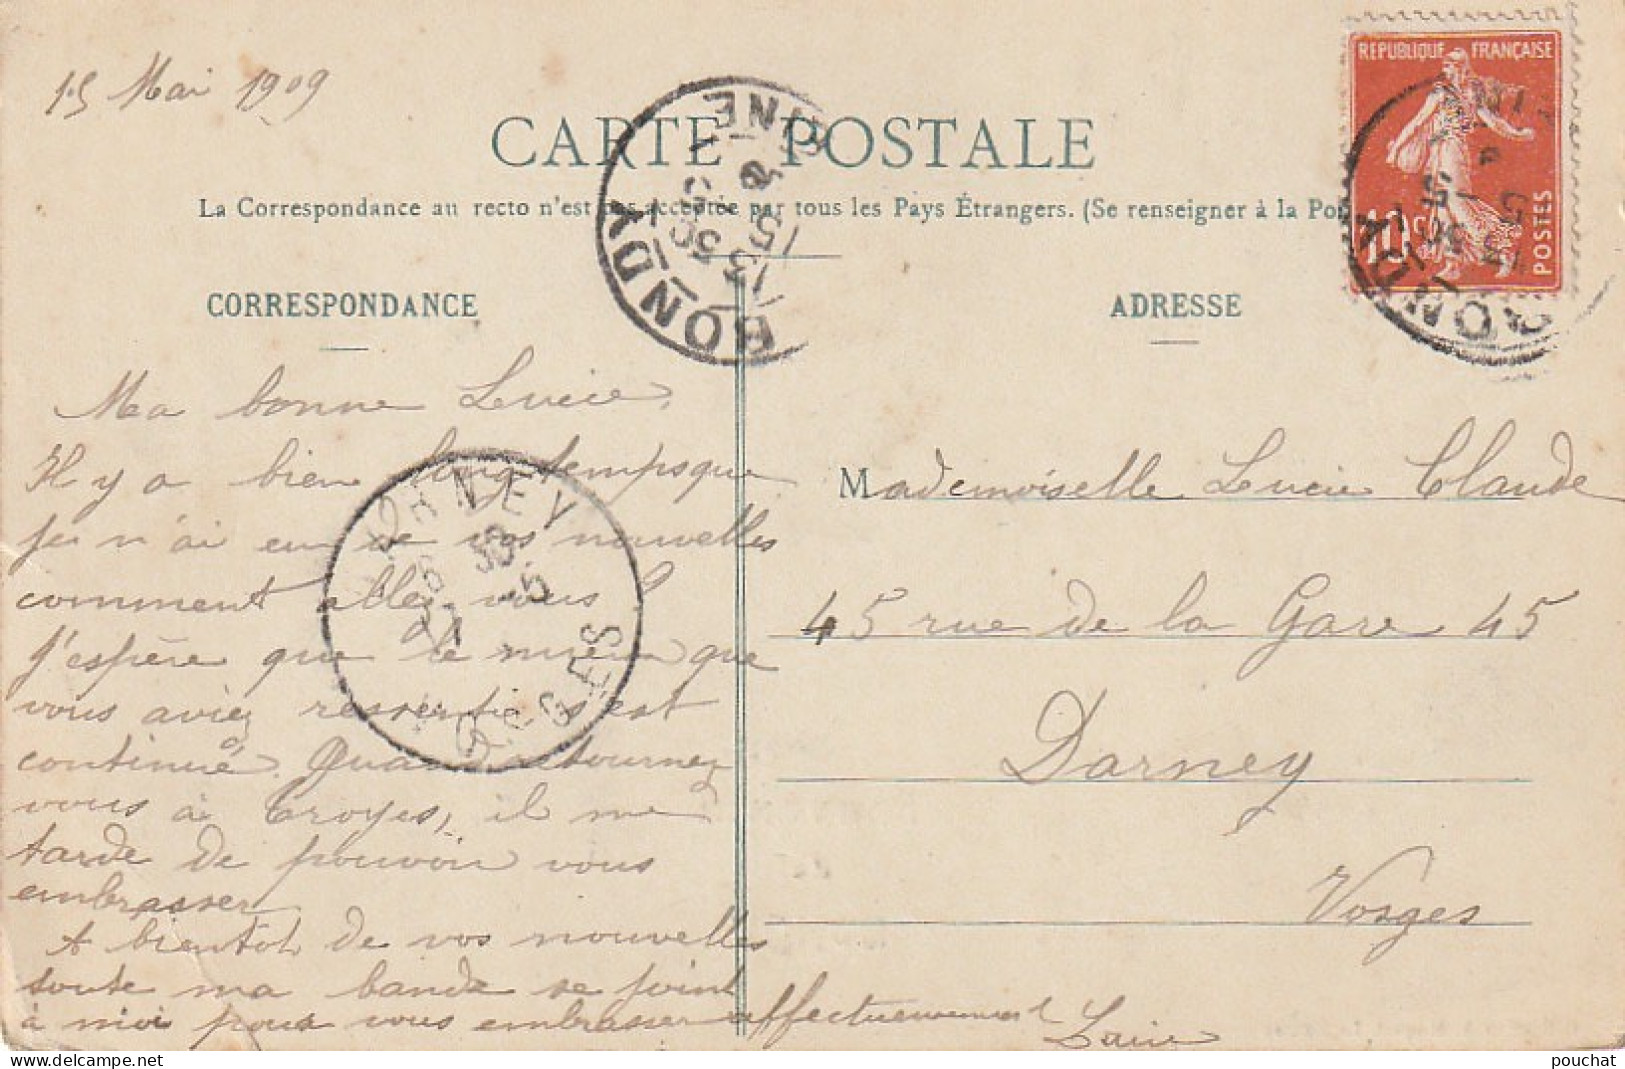 15 Mai 1909
CARTE POSTALE
La Correspondance au recto n'est pas acceptée par tous les Pays Étrangers. (Se renseigner à la Po
CORRESPONDANCE
Ma bonne Lucie,
Il y a bien longtemps que
je n'ai eu de vos nouvelles
comment allez-vous ?
J'espère que le mieux que
vous aviez ressenti s'est
continué. Quand retournez
vous à Troyes, il me
tarde de pouvoir vous
embrasser
A bientôt de vos nouvelles
toute ma bande se joint
à moi pour vous embrasser affectueusement
Lucie
ADRESSE
Mademoiselle Lucie Claude
45 rue de la Gare 45
Darney
Vosges
REPUBLIQUE FRANÇAISE
10 c
POSTES
BONDY
SEINE
3 50
15 5
BONDY
DARNEY
VOSGES
delcampe.net
pouchat